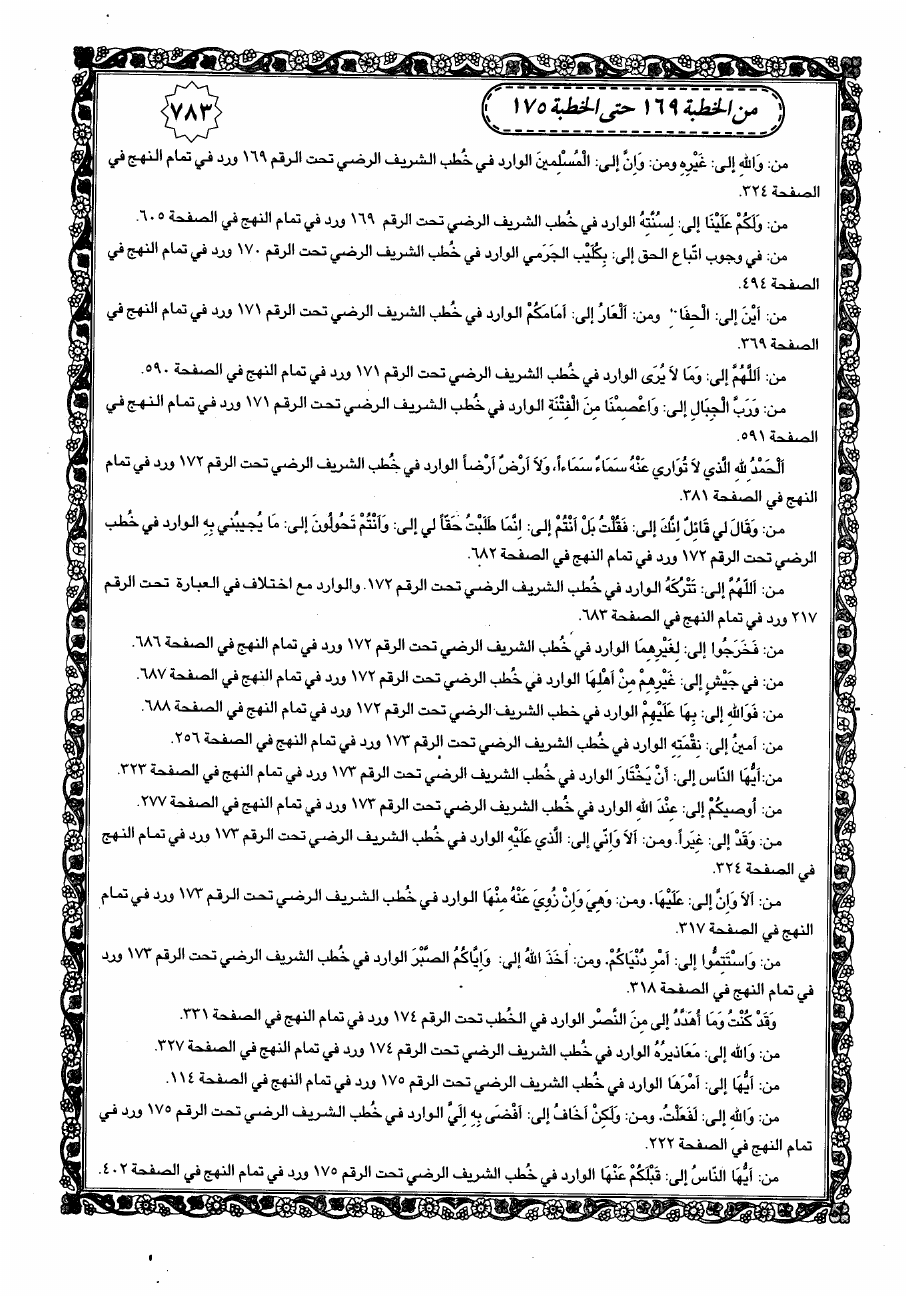 من الخطبة ١٦٩ حتى الخطبة ١٧٥
٧٨٣
من: وَاللهِ إلى: غَيْرِهِ ومن: وَإِنَّ إلى: الْمُسْلِمينَ الوارد في خُطب الشريف الرضي تحت الرقم ١٦٩ ورد في تمام النهج في
الصفحة ٣٢٤.
من: وَلَكُمْ عَلَيْنَا إلى: لِسُنَّتِهُ الوارد في خُطب الشريف الرضي تحت الرقم ١٦٩ ورد في تمام النهج في الصفحة ٦٠٥.
من: في وجوب اتّباع الحق إلى: بِكُلَيْب الجَرَمي الوارد في خُطب الشريف الرضي تحت الرقم ١٧٠ ورد في تمام النهج في
الصفحة ٤٩٤.
من: أَيْنَ إلى: الْحِفَا ومن: اَلْعَارُ إلى: أَمَامَكُمْ الوارد في خُطب الشريف الرضي تحت الرقم ١٧١ ورد في تمام النهج في
الصفحة ٣٦٩.
من: اَللَّهُمَّ إلى: وَمَا لاَ يُرَى الوارد في خُطب الشريف الرضي تحت الرقم ١٧١ ورد في تمام النهج في الصفحة ٥٩٠.
من: وَرَبَّ الْجِبَالِ إلى: وَاعْصِمْنَا مِنَ الْفِتْنَةِ الوارد في خُطب الشريف الرضي تحت الرقم ١٧١ ورد في تمام النهج في
الصفحة ٥٩١.
اَلْحَمْدُ لِلهِ الَّذي لاَ تُوَاري عَنْهُ سَمَاءٌ سَمَاءاً، وَلاَ أَرْضٌ أَرْضاً الوارد في خُطب الشريف الرضي تحت الرقم ١٧٢ ورد في تمام
النهج في الصفحة ٣٨١.
من: وَقَالَ لي قَائِلٌ إِنَّكَ إلى: فَقُلْتُ بَلْ أَنْتُمْ إلى: إِنَّمَا طَلَبْتُ حَقّاً لي إلى: وَأَنْتُمْ تَحُولُونَ إلى: مَا يُجيبُني بِهِ الوارد في خُطب
الرضي تحت الرقم ١٧٢ ورد في تمام النهج في الصفحة ٦٨٢.
من: اَللَّهُمَّ إلى: تَتْرُكَهُ الوارد في خُطب الشريف الرضي تحت الرقم ١٧٢. والوارد مع اختلاف في العبارة تحت الرقم
٢١٧ ورد في تمام النهج في الصفحة ٦٨٣.
من: فَخَرَجُوا إلى: لِغَيْرِهِمَا الوارد في خُطب الشريف الرضي تحت الرقم ١٧٢ ورد في تمام النهج في الصفحة ٦٨٦.
من: في جَيْشٍ إلى: غَيْرِهِمْ مِنْ أَهْلِهَا الوارد في خُطب الشريف الرضي تحت الرقم ١٧٢ ورد في تمام النهج في الصفحة ٦٨٧.
من: فَوَاللهِ إلى: بِهَا عَلَيْهِمْ الوارد في خطب الشريف الرضي تحت الرقم ١٧٢ ورد في تمام النهج في الصفحة ٦٨٨.
من: أَمينُ إلى: نِقْمَتِهِ الوارد في خُطب الشريف الرضي تحت الرقم ١٧٣ ورد في تمام النهج في الصفحة ٢٥٦.
من: أَيُّهَا النّاس إلى: أَنْ يَخْتَارَ الوارد في خُطب الشريف الرضي تحت الرقم ١٧٣ ورد في تمام النهج في الصفحة ٣٢٣.
من: أُوصيكُمْ إلى: عِنْدَ اللهِ الوارد في خُطب الشريف الرضي تحت الرقم ١٧٣ ورد في تمام النهج في الصفحة ٢٧٧.
من: وَقَدْ إلى: غِيَراً. ومن: أَلاَ وَإِنّي إلى: الَّذي عَلَيْهِ الوارد في خُطب الشريف الرضي تحت الرقم ١٧٣ ورد في تمام النهج
في الصفحة ٣٢٤.
من: أَلاَ وَإِنَّ إلى: عَلَيْهَا. ومن: وَهِيَ وَإِنْ زُوِيَ عَنْهُ مِنْهَا الوارد في خُطب الشريف الرضي تحت الرقم ١٧٣ ورد في تمام
النهج في الصفحة ٣١٧.
من: وَاسْتَتِمُّوا إلى: أَمْرِ دُنْيَاكُمْ. ومن: أَخَذَ اللهُ إلى: وَإِيَّاكُمُ الصَّبْرَ الوارد في خُطب الشريف الرضي تحت الرقم ١٧٣ ورد
في تمام النهج في الصفحة ٣١٨.
وَقَدْ كُنْتُ وَمَا أُهَدَّدُ إلى مِنَ النَّصْر الوارد في الخُطب تحت الرقم ١٧٤ ورد في تمام النهج في الصفحة ٣٣١.
من: وَالله إلى: مَعَاذيرُهُ الوارد في خُطب الشريف الرضي تحت الرقم ١٧٤ ورد في تمام النهج في الصفحة ٣٢٧.
من: أَيُّهَا إلى: أَمْرَهَا الوارد في خُطب الشريف الرضي تحت الرقم ١٧٥ ورد في تمام النهج في الصفحة ١١٤.
من: وَاللهِ إلى: لَفَعَلْتُ. ومن: وَلَكِنْ أَخَافُ إلى: أَفْضَى بِهِ إِلَيَّ الوارد في خُطب الشريف الرضي تحت الرقم ١٧٥ ورد في
تمام النهج في الصفحة ٢٢٢.
من: أَيُّهَا النَّاسُ إلى: قَبْلَكُمْ عَنْهَا الوارد في خُطب الشريف الرضي تحت الرقم ١٧٥ ورد في تمام النهج في الصفحة ٤٠٢.